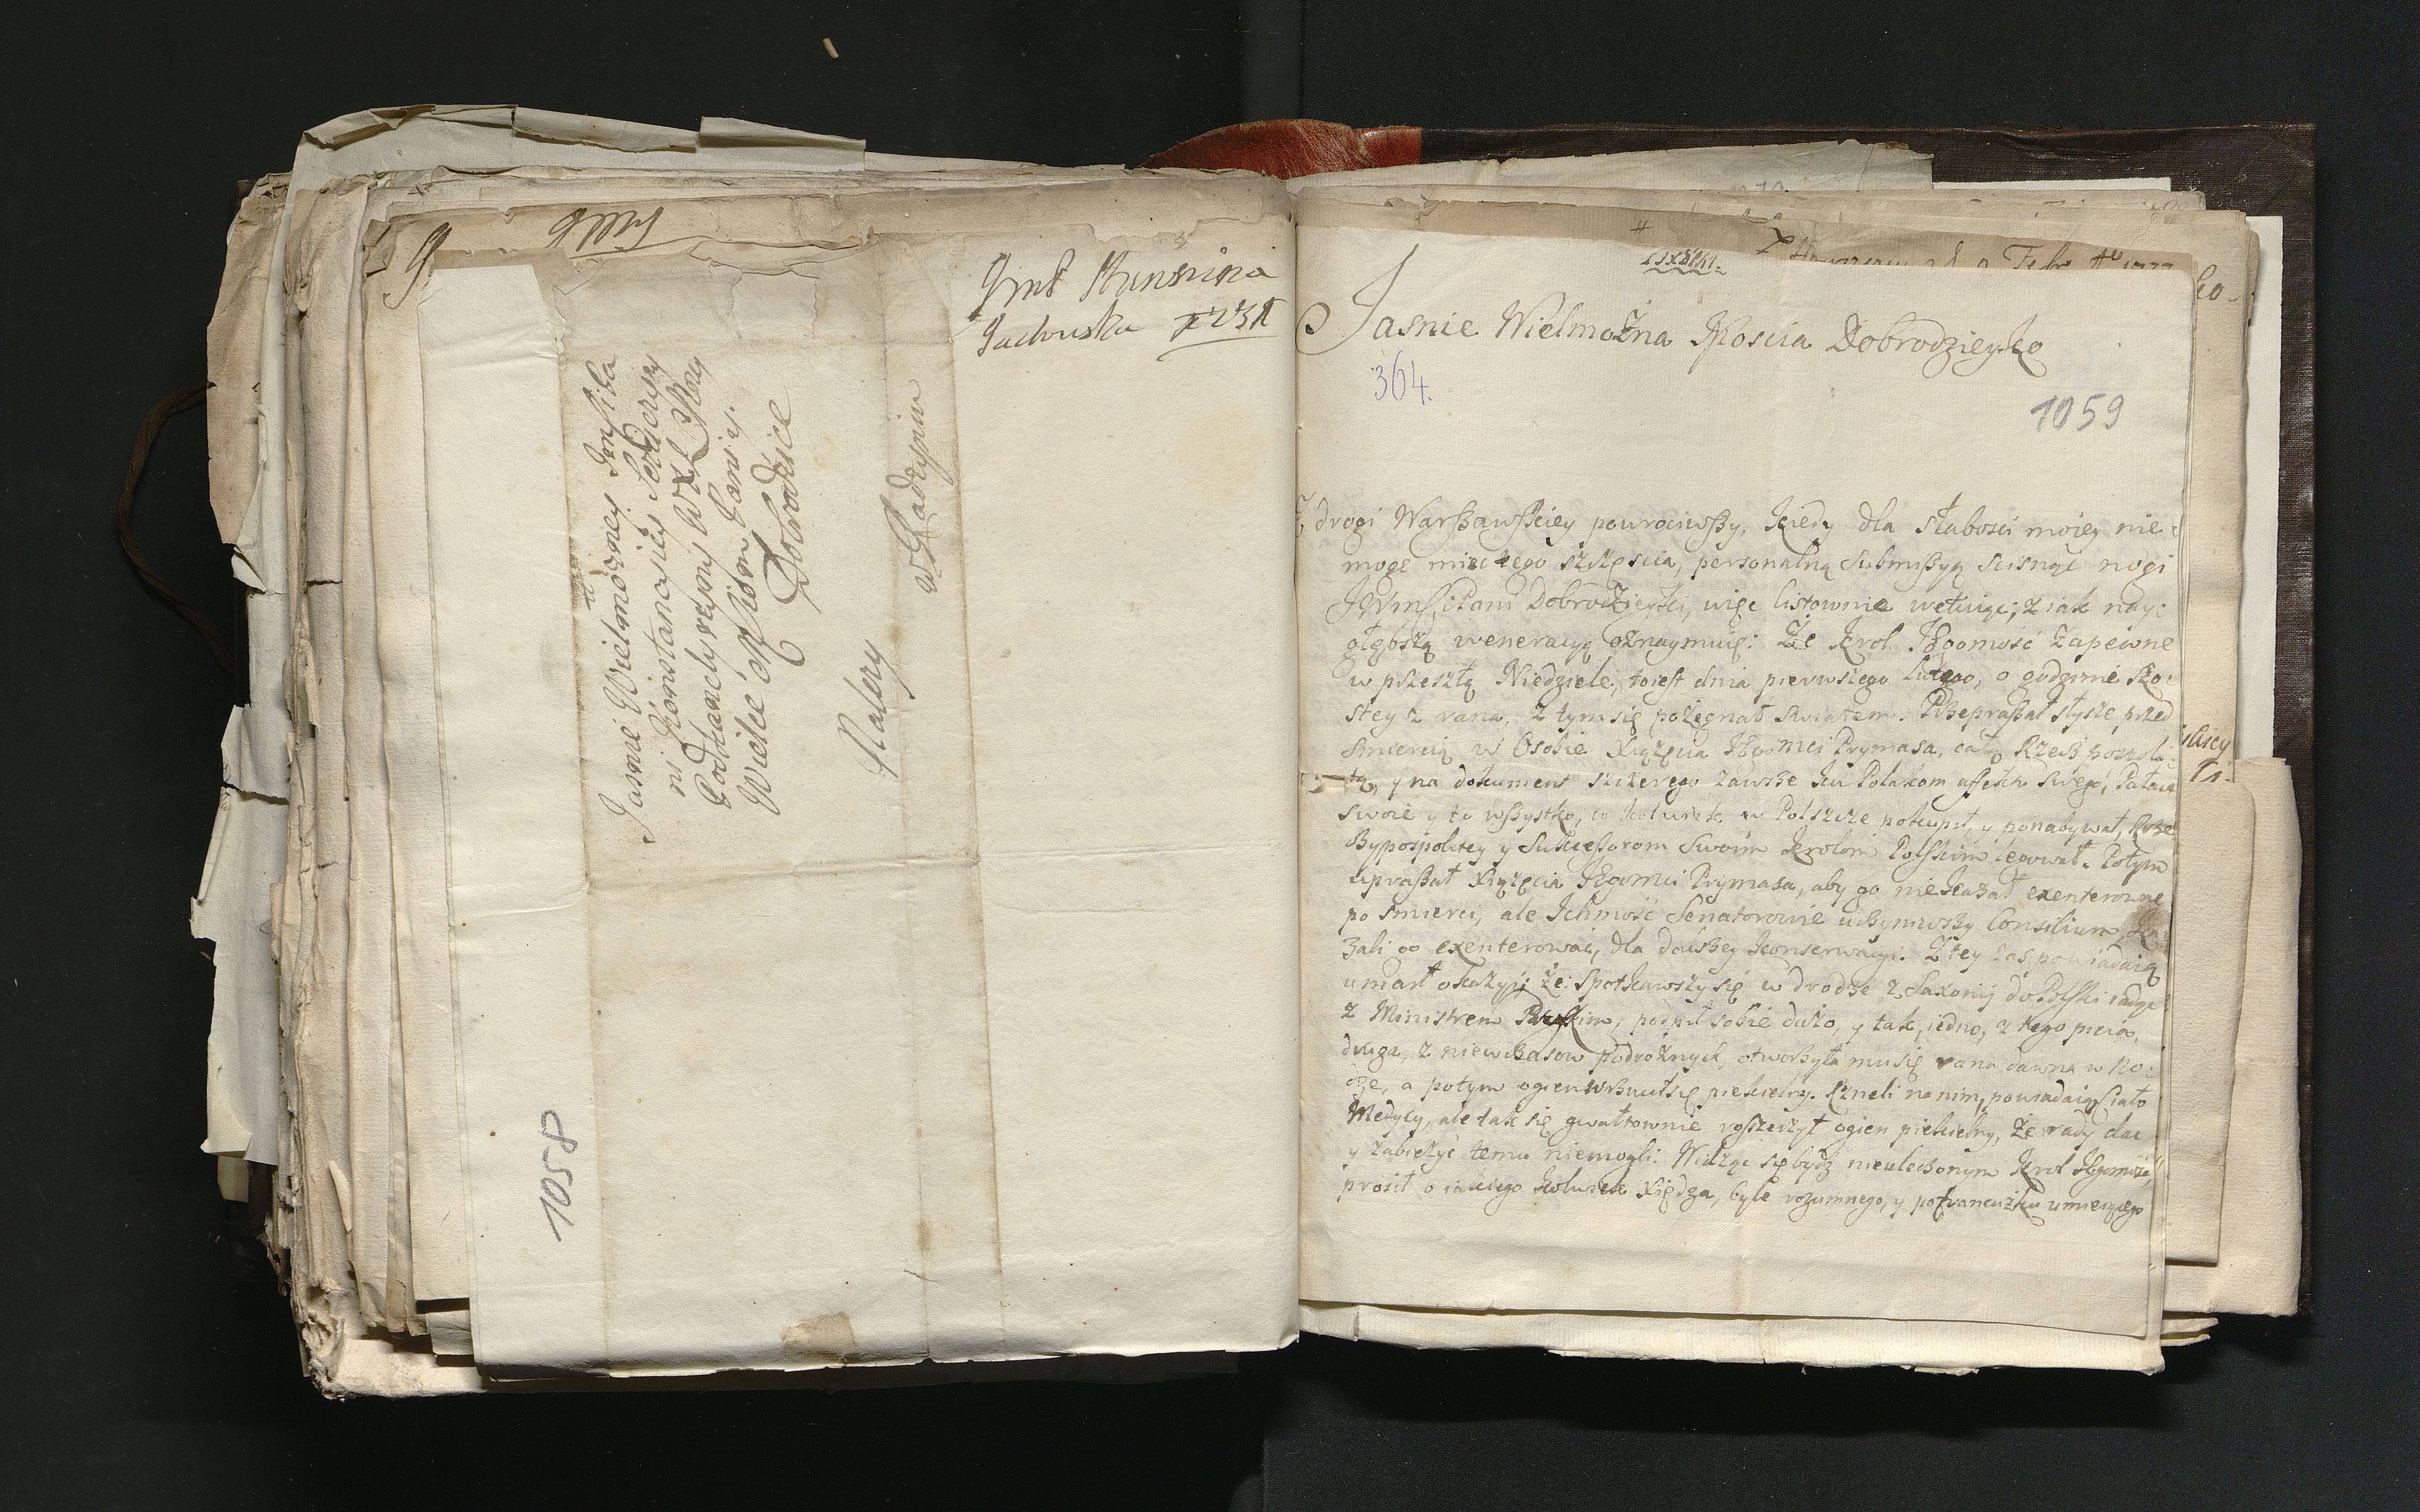 Jasnie Wielmożney Jmsci Pa
ni Konstancyiey
Podkanclerzyney WXL
Wielce Moscney Paniey
Dobrodzice
Należy
w Radzyniu
1058
1059
364.
Jasnie Wielmożna Mościa Dobrodzieyko
Z drogi Warszawskiey powrociwszy, kiedy dla słabosci moiey nie
mogę mieć tego szczęscia, personalną submissyą scisnąć nogi
JWJmsci Pani Dobrodzieyki, więc listownie wetuiąc; z iak nay:
głębszą weneracyą oznaymuię: Że Krol Jegomość zapewne
w przeszłą Niedzielę, toiest dnia pierwszego lutego, o godzinie szo:
stey z rana, z tym się pożegnał światem. Przepraszał słyszę, przed
śmiercią w Osobie Xiążęcia Jegomci Prymasa, całą Rzeczpospoli:
tą, y na dokument szczerego zawsze ku Polakom affektu swego, Pałace
swoie y to wszystko, co kolwiek w Polszcze pokupił, y ponabywał, Rze
czypospolitey y Sukcessorom swoim Krolom Polskim legował. Potym
upraszał Xiążęcia Jegomci Prymasa, aby go nie kazał exenterować
po smierci, ale Ichmość Senatorowie uczyniwszy Consilium ka
zali go exenterować, dla dalszey konserwacyi. Z tey zas powiadaią
umarł okazyi; że spotkawszy się w drodze z Saxonij do Polski iadąc
z Ministrem Pruskim, podpił sobie dużo, y tak, iedno, z tego picia,
druga, z niewczasow podrożnych, otworzyła mu się rana dawna w no:
dze, a potym ogien wrzucił się piekielny. Rzneli na nim, powiadaią ciało
Medycy, ale tak się gwałtownie roszerzył ogien piekielny, że rady dac
y zabieżyć temu niemogli. Widząc się bydź nieuleczonym Krol Jegomość,
prosił o iakiego kolwiek Xiędza, byle rozumnego, y po francuzku umieiącego